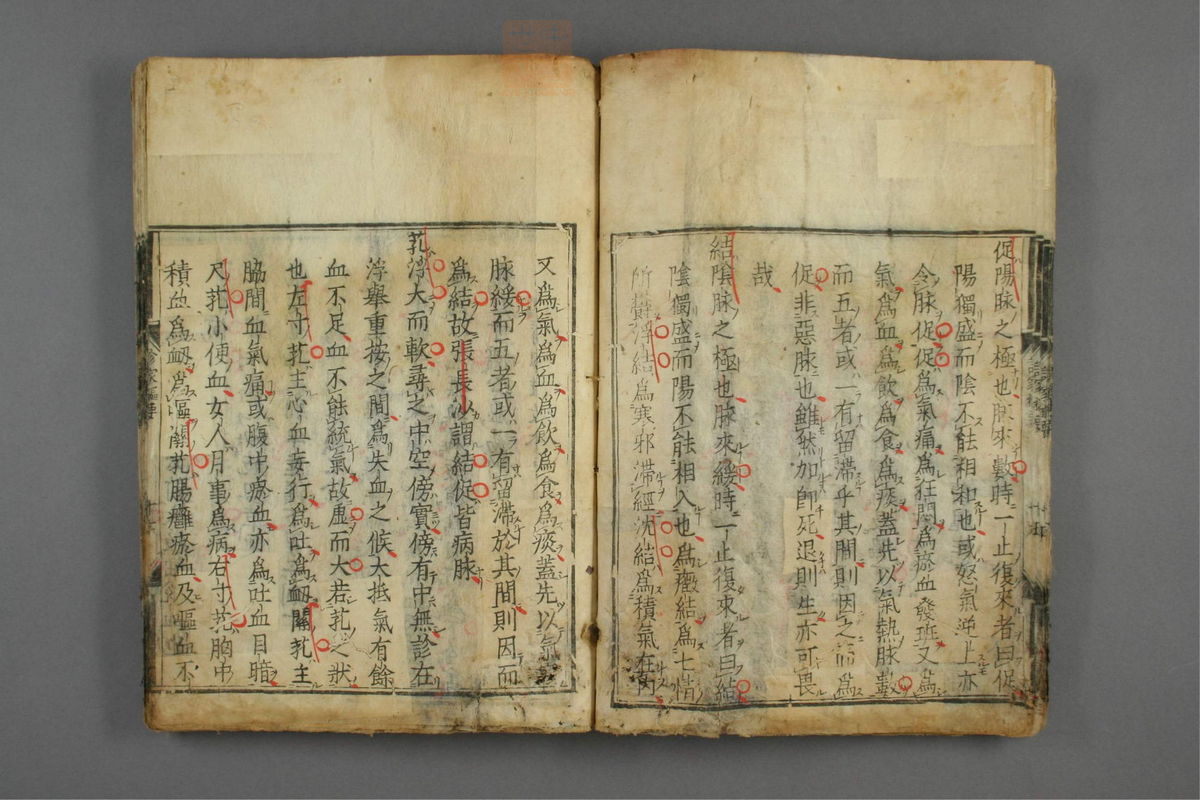 促陽脉之極也脉來數時一止復來者曰促
陽獨盛而陰不能相和也或怒氣逆上亦
令脉促促爲氣痛爲狂悶爲瘀血發班又爲
氣爲血爲飲爲食爲痰蓋先以氣熱脉數
而五者或一有留滯乎其間則因之而爲
促非惡脉也雖然加即死退則生亦可畏
哉
結陰脉之極也脉來緩時一止復來者曰結
陰獨盛而陽不能相入也爲癥結爲七情
所鬱浮結爲寒邪滯經沈結爲積氣在內
又爲氣爲血爲飲爲食爲痰蓋先以氣
脉緩而五者或一有留滯於其間則因而
爲結故張長沙謂結促皆病脉
芤浮大而軟尋之中空傍實傍有中無診在
浮舉重按之間爲失血之候大抵氣有餘
血不足血不能統氣故虛而大若芤之狀
也左寸芤主心血妄行爲吐爲衂關芤主
脇間血氣痛或腹中瘀血亦爲吐血目暗
尺芤小便血女人月事爲病右寸芤胸中
積血爲衂爲嘔關芤腸癰瘀血及嘔血不